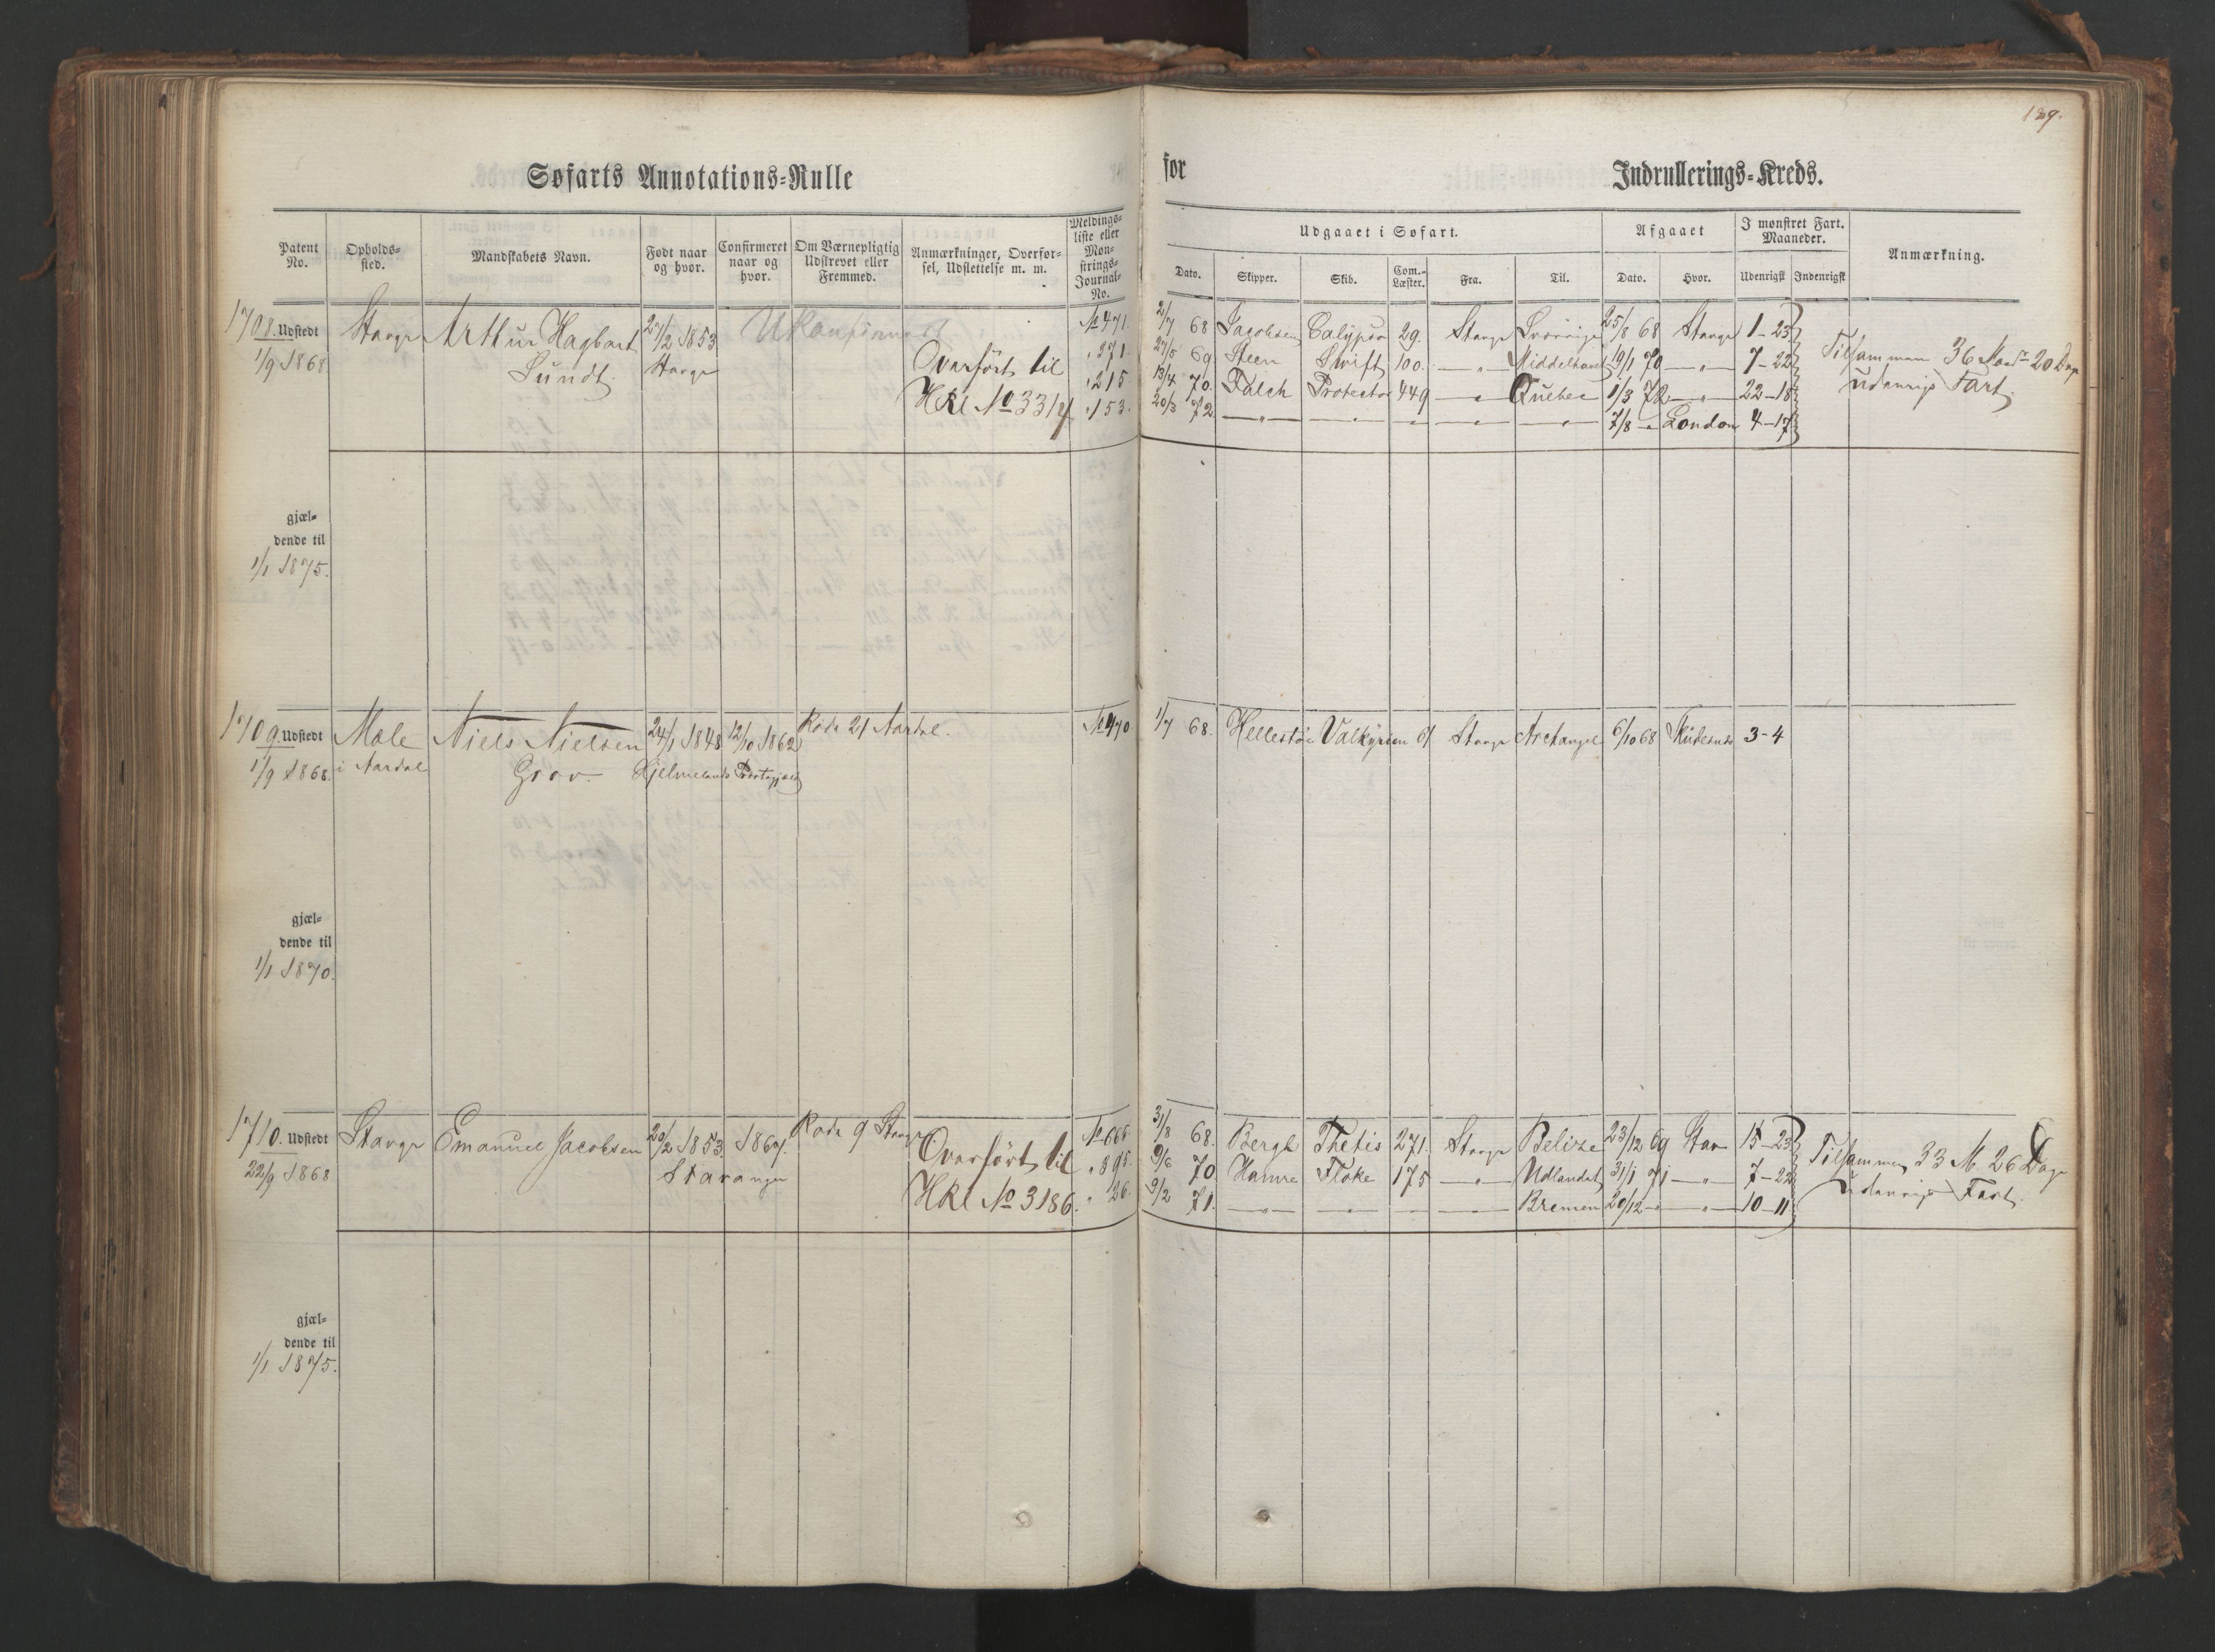 189.
Søfarts Annotations-Rulle
for
Indrullerings-Kreds.
Patent No.
Opholds-sted.
Mandskabets Navn.
Født naar og hvor.
Confirmeret naar og hvor.
Om Værnepligtig Udskrevet eller Fremmed.
Anmærkninger, Overførsel, Udslettelse m. m.
Meldingsliste eller Mønstrings-Journal-No.
Udgaaet i Søfart.
Afgaaet
I mønstret Fart. Maaneder.
Anmærkning.
Dato. Skipper. Skib. Com.-Læster. Fra. Til. Dato. Hvor. Udenrigsk Indenrigsk
1708. Udstedt Stavgr Arthur Hagbart 27/2 1853 Ukonfirmert No 471.
1/9 1868 Lundt. Stavgr Overført til " 271.
HRl No 3314 " 215
" 153.
2/7 68 Jacobsen Calypso 29. Stavgr 25/8 68 Stavgr 1-23
27/5 69 Steen Swift 100. " Middelhavet 19/1 70 " 7-22
13/4 70. Falch Protector 449 " Quebec 1/3 72 " 22-18
20/3 72 " 7/8 " London 4-17
Tilsammen 36 Maadr 20 Dage
udenrigs Fart.
gjæl-
dende til
1/1 1875.
1709. Udstedt Mæle Niels Nielsen 24/1 1848 12/10 1862 Rode 21 Aardal. No 470
1/9 1868. i Aardal Grov. Hjelmelands Præstegjæld
1/7 68. Hellestø Valkyrien 61 Stavgr Archangel 6/10 68 Skudesnæs 3-4
gjæl-
dende til
1/1 1870.
1710. Udstedt Stavgr Emanuel Jacobsen 20/2 1853. 1867. Rode 9 Stavgr No 666.
22/9 1868 Stavanger Overført til " 395.
HRl No 3186. " 26.
31/8 68. Bergh Thetis 271. Stavgr Belize 23/12 69 Stav 15-23
9/6 70 Hamre Floke 175 " Udlandet 31/1 71 " 7-22
9/2 71. " Bremen 20/12 " 10-11
Tilsammen 33 M 26 Dage
udenrigs Fart.
gjæl-
dende til
1/1 1875.